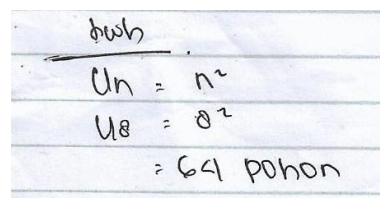 Un = n²
U8 = 8²
= 64 pohon